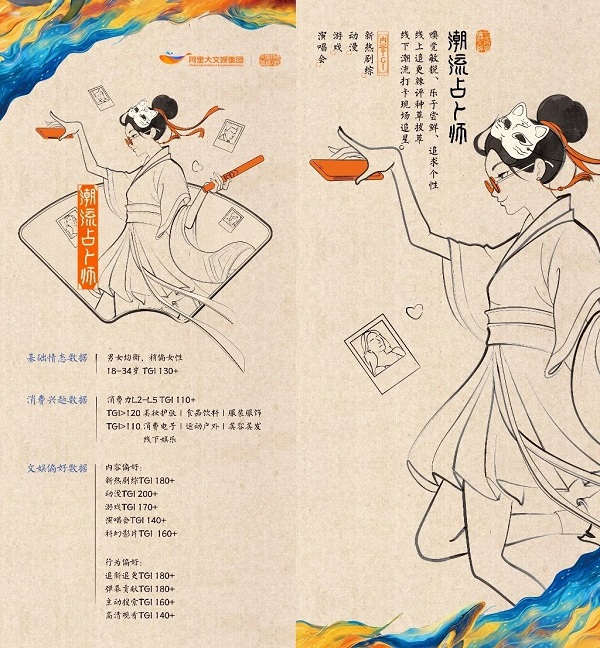 阿里大文娱集团
潮流占卜师
基础情态数据
男女均衡，稍偏女性
18-34岁 TGI 130+
消费兴趣数据
消费力L2-L5 TGI 110+
TGI>120 美妆护肤 | 食品饮料 | 服装服饰
TGI>110 消费电子 | 运动户外 | 美容美发
线下娱乐
文娱偏好数据
内容偏好：
新热剧综TGI 180+
动漫TGI 200+
游戏TGI 170+
演唱会TGI 140+
科幻影片TGI 160+
行为偏好：
追新追更TGI 180+
弹幕贡献TGI 180+
主动搜索TGI 160+
高清观看TGI 140+
潮流占卜师
嗅觉敏锐、乐于尝鲜、追求个性
线上追更辣评种草拔草
线下潮流打卡现场追星。
内容TGI
新热剧综
动漫
游戏
演唱会